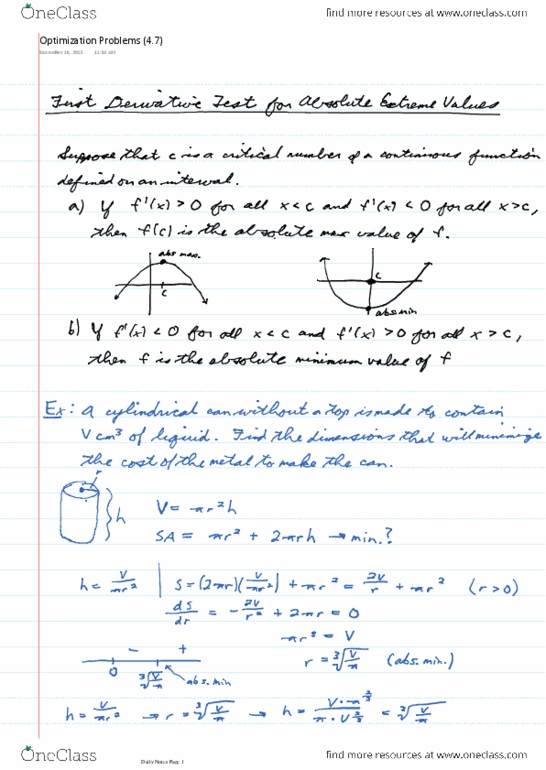 OneClass
find more resources at www.oneclass.com
Optimization Problems (4.7)
First Derivative Test for Absolute Extreme Values
Suppose that c is a critical number of a continuous function
defined on an interval.
a) If f'(x) > 0 for all x < c and f'(x) < 0 for all x > c,
then f(c) is the absolute max value of f.
abs max.
c
c
abs min
b) If f'(x) < 0 for all x < c and f'(x) > 0 for all x > c,
then f is the absolute minimum value of f
Ex: A cylindrical can without a top is made to contain
V cm³ of liquid. Find the dimensions that will minimize
the cost of the metal to make the can.
r
h
V = πr²h
SA = πr² + 2πrh → min.?
h = V/πr² | S = (2πr)(V/πr²) + πr² = 2V/r + πr² (r>0)
dS/dr = -2V/r² + 2πr = 0
πr³ = V
- +
r = ∛(V/π) (abs. min.)
0
∛(V/π) abs. min
h = V/πr² → r = ∛(V/π) → h = V·π^(2/3)/π·V^(2/3) = ∛(V/π)
OneClass
find more resources at www.oneclass.com
Daily Notes Page 1